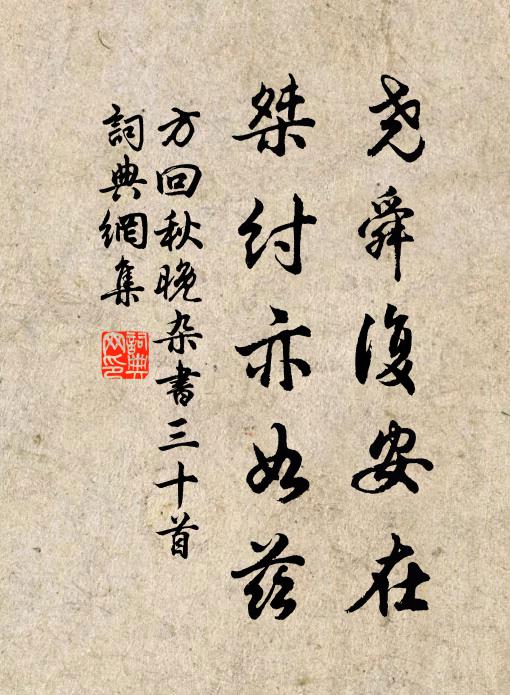 尧舜復安在
桀紂亦如兹
方回秋晚杂書三十首
詞典網集
詞典网印